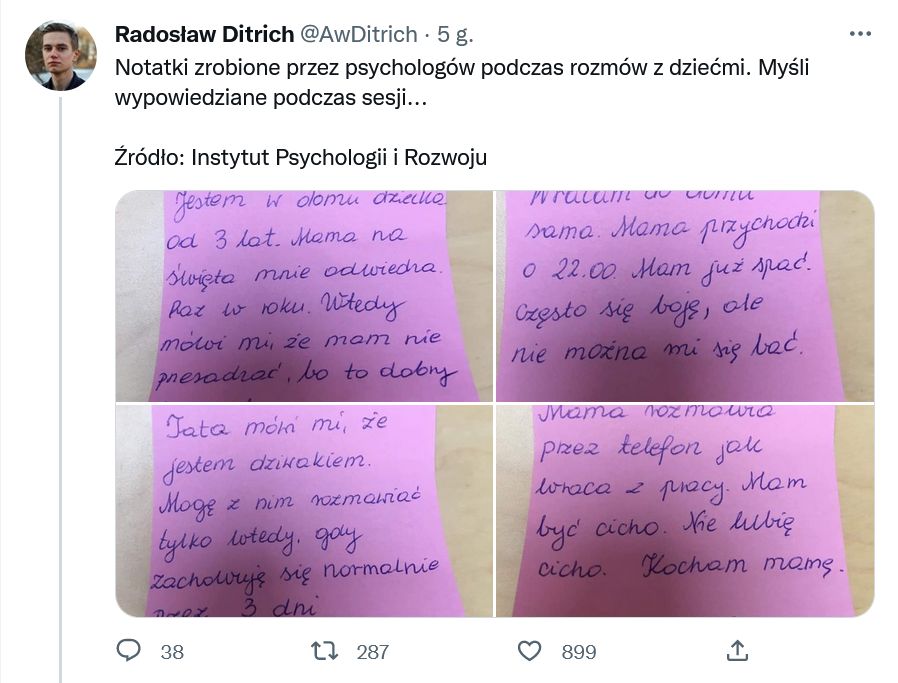 Radosław Ditrich @AwDitrich · 5 g.
Notatki zrobione przez psychologów podczas rozmów z dziećmi. Myśli
wypowiedziane podczas sesji...
Źródło: Instytut Psychologii i Rozwoju
Jestem w domu dziecka
od 3 lat. Mama na
święta mnie odwiedza.
Raz w roku. Wtedy
mówi mi, że mam nie
przesadzać, bo to dobry
Wracam do domu
sama. Mama przychodzi
o 22.00. Mam już spać.
Często się boję, ale
nie można mi się bać.
Tata mówi mi, że
jestem dziwakiem.
Mogę z nim rozmawiać
tylko wtedy, gdy
zachowuję się normalnie
przez 3 dni
Mama rozmawia
przez telefon jak
wraca z pracy. Mam
być cicho. Nie lubię
cicho. Kocham mamę.
38 287 899